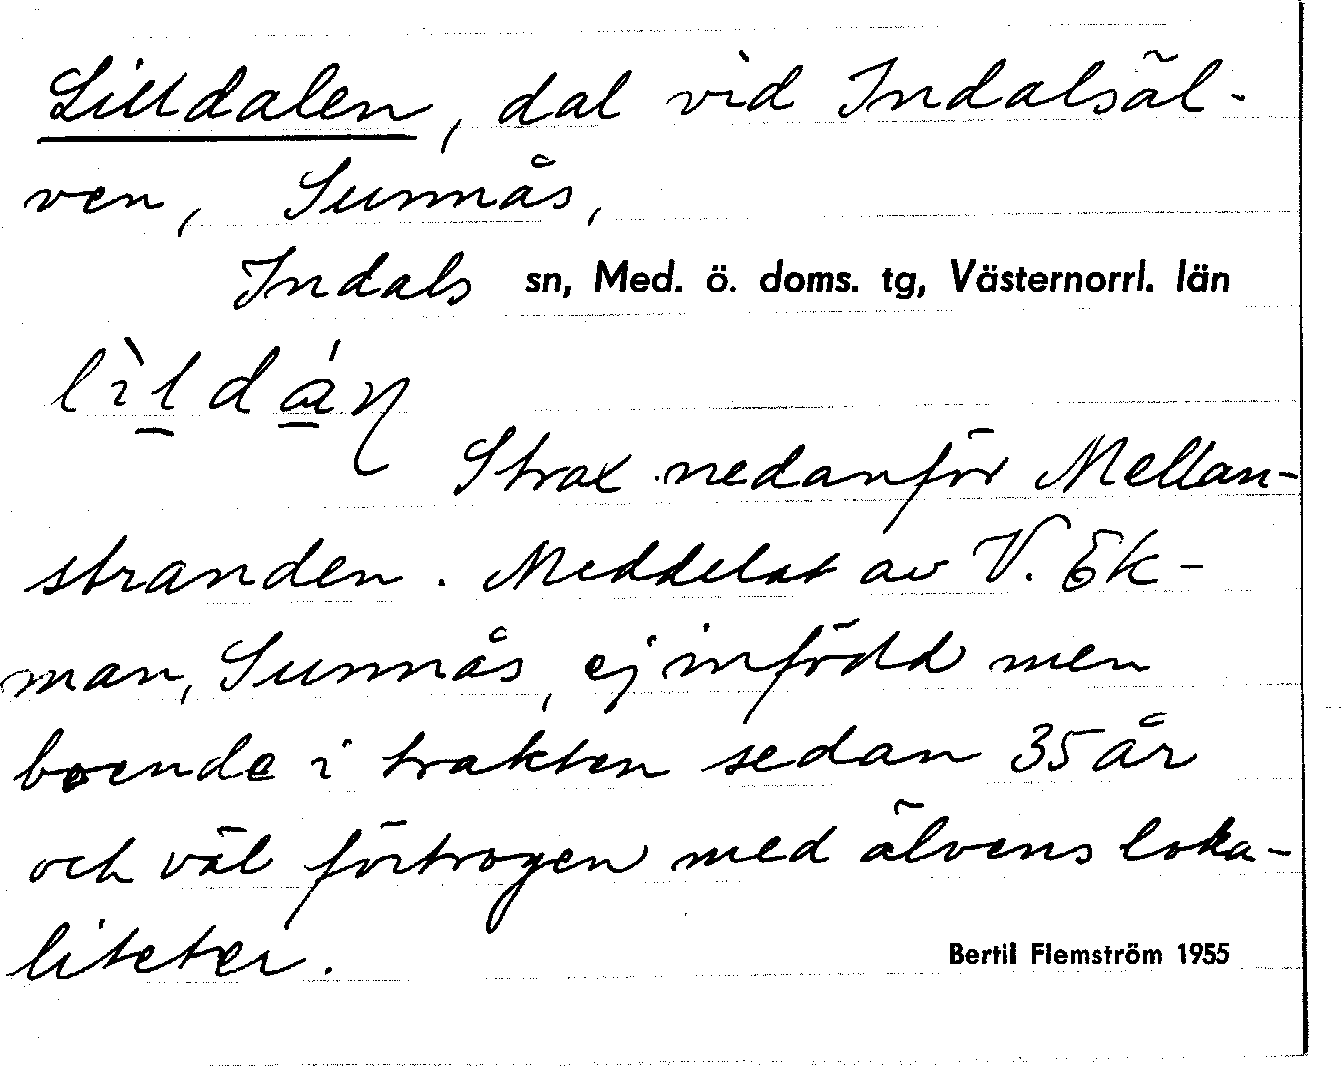 Lilldalen, dal vid Indalsäl-
ven, Sunnås,
Indals sn, Med. ö. doms. tg, Västernorrl. län
Strax nedanför Mellan-
stranden. Meddelat av V. Ek-
man, Sunnås, ej infödd men
boende i trakten sedan 35 år
och väl förtrogen med älvens loka-
liteter.
Bertil Flemström 1955